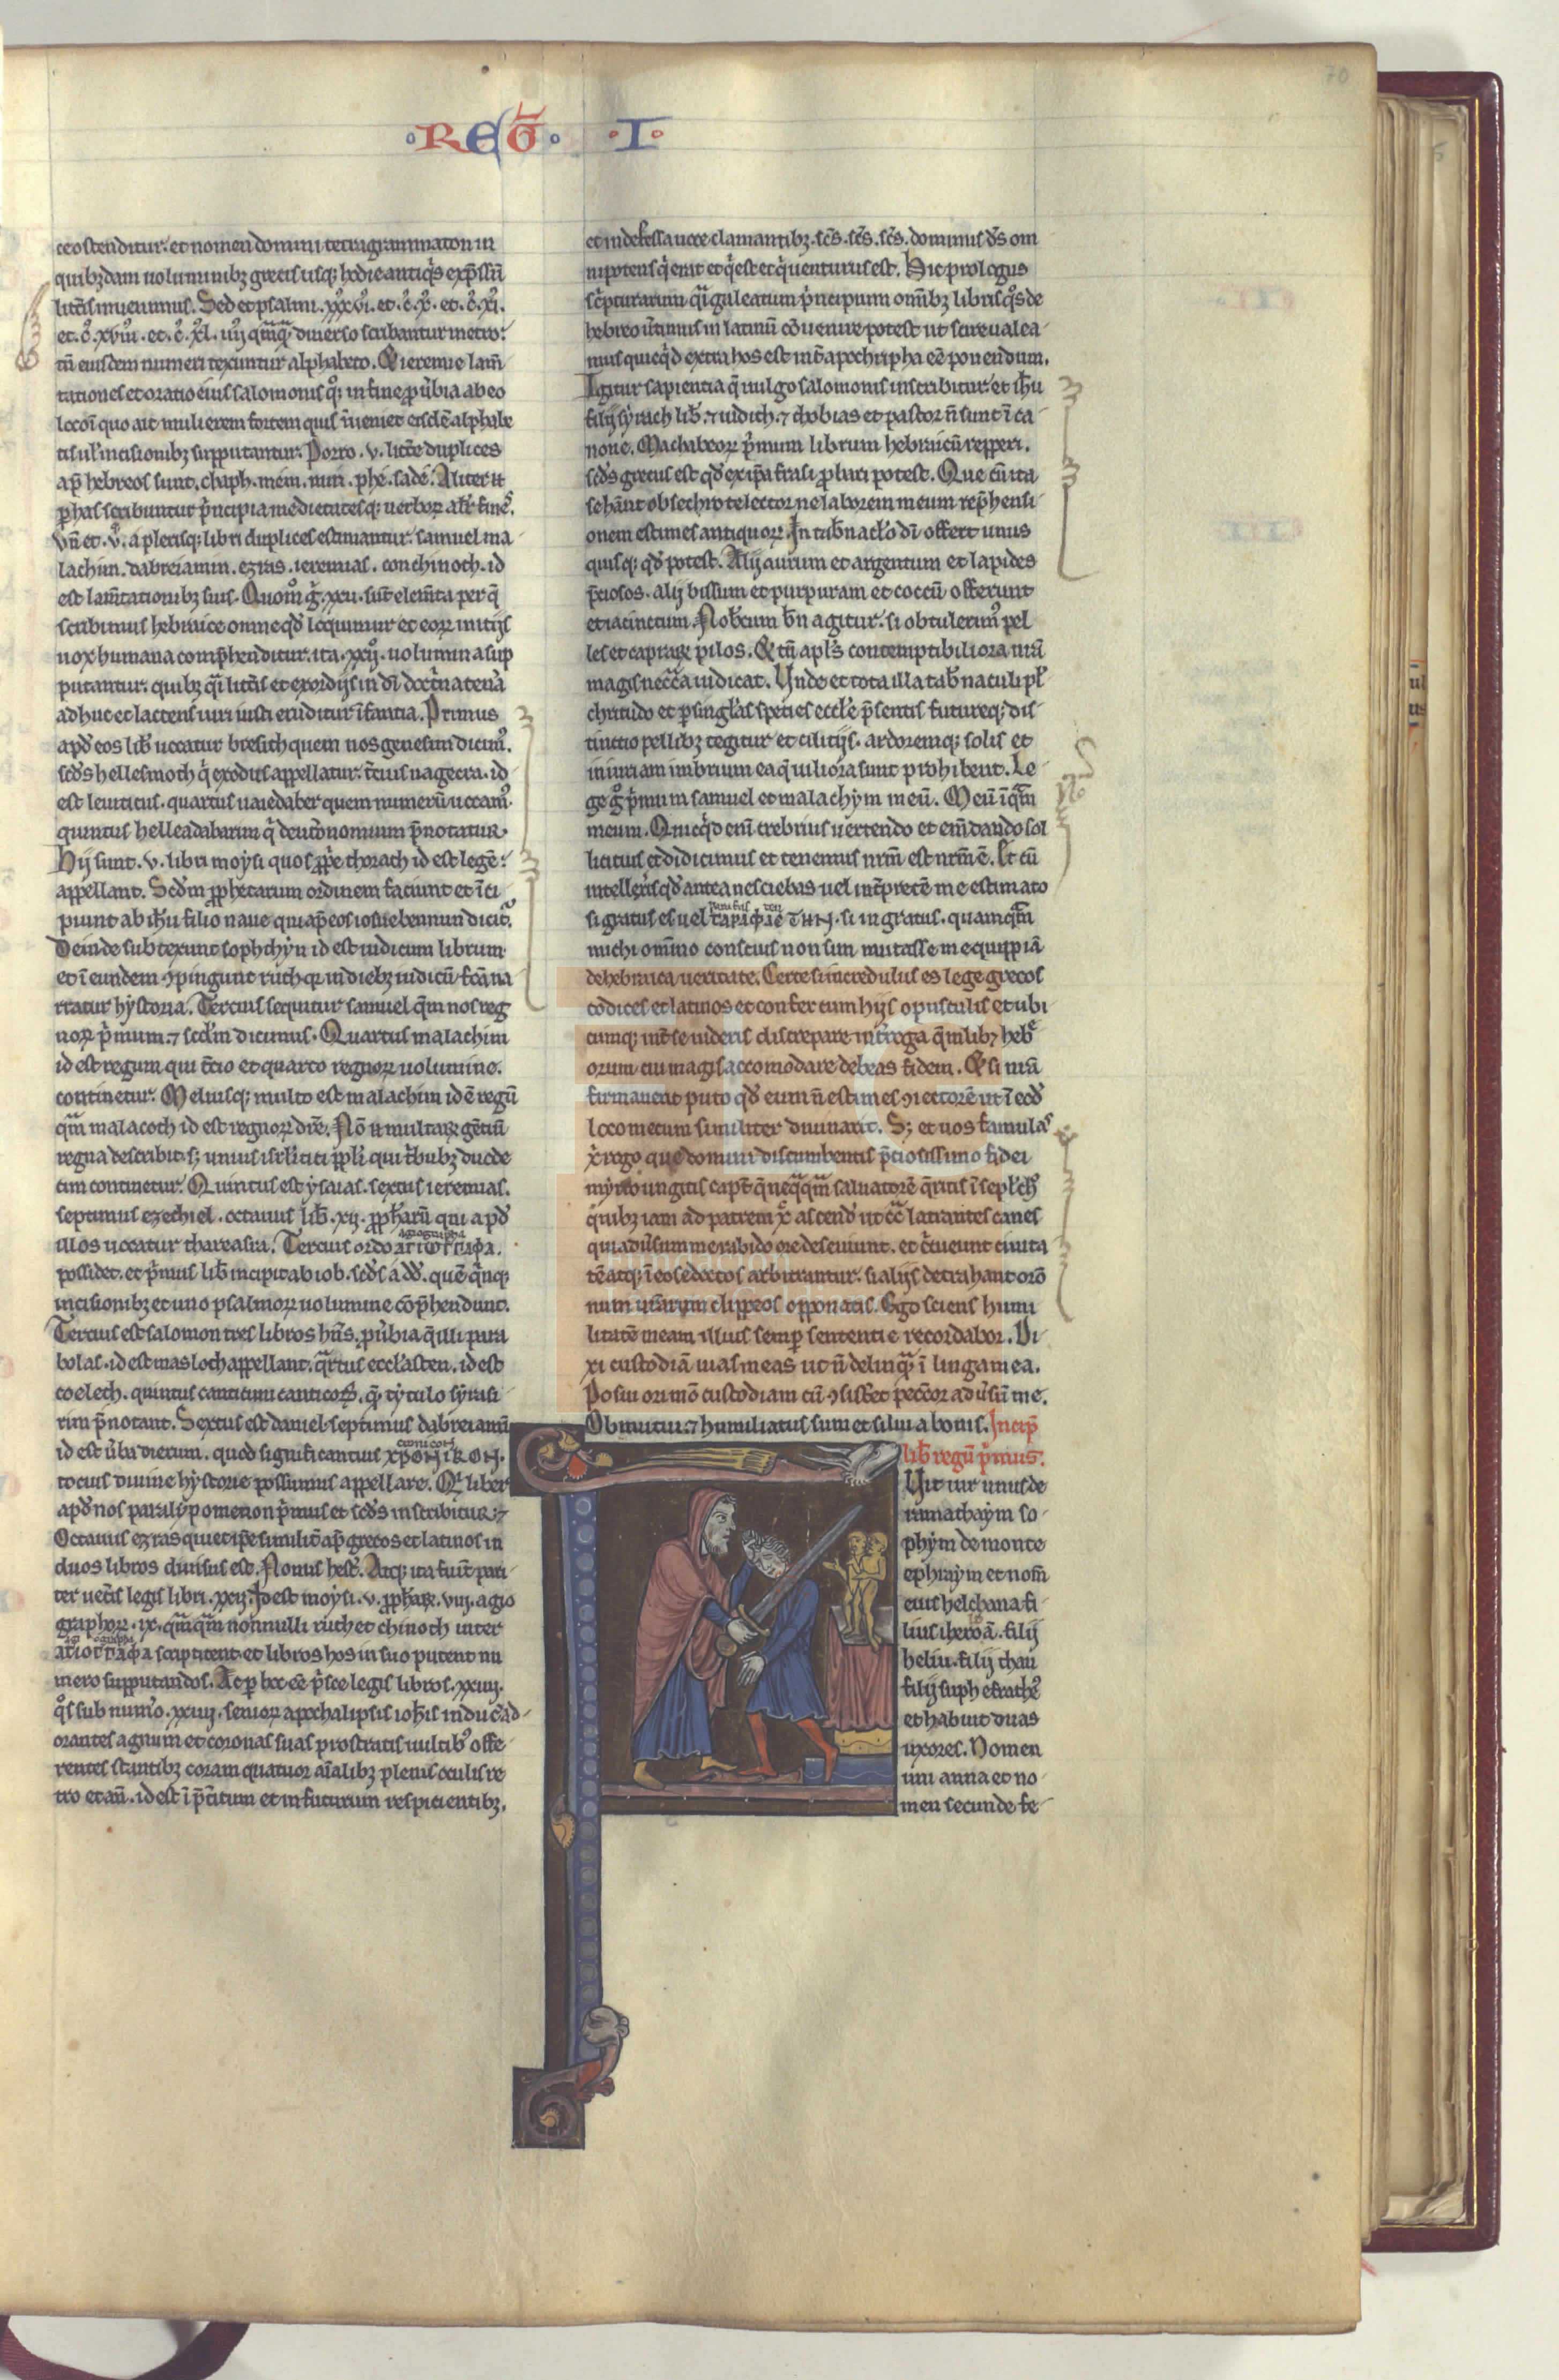 ·REḠ· ·I·
70
ce ostenditur. et nomen domini tetragrammaton in
quibȝdam uoluminibȝ grecis usqȝ hodie antiq̍s exp̄ssū
litt̄is inuenimus. Sed et psalmi. xxxvi. et. c̊. x̊. et. c̊. xi.
et. c̊. xviii. et. c̊. xl. iiij q̄mq̄ȝ diuerso scribantur metro:
tn̄ eiusdem numeri texuntur alphabeto. Et ieremie lam̄
tationes et oratio eius salomonis q̊ȝ in fine ꝓūbia ab eo
loco ī quo ait mulierem fortem quis īueniet eisdē alphabe
tis ul̍ incisionibȝ supputantur. Porro .v. litt̄e duplices
ap̄ hebreos sunt. chaph. mem. nun. phe. sade. Aliter n̄
ꝑ has scribuntur p̄ncipia medietatesqȝ uerboꝝ alit̄ fines.
Vn̄ et .v. a plerisqȝ libri duplices estimantur. samuel ma
lachim. dabreiamin. ezras. ieremias. con chinoch. id
est lam̄tationibȝ suis. Quom̊ ḡ .xxii. sūt elem̄ta per q̄
scribimus hebraice omne qd̄ loquimur et eoꝝ initijs
uox humana comp̄henditur. ita .xxij. uolumina sup
putantur. quibȝ q̄i litt̄is et exordijs in dī doct̄na ten̄a
adhuc et lactens uiri iusti eruditur īfantia. Primus
apd̄ eos lib̄ uocatur bresich quem nos genesim dicim̊.
scd̄s hellesmoch q̍ exodus appellatur. t̄cius uagecra. id
est leuiticus. quartus uaiedaber quem numerū uocam̊.
quintus helleadabarim q̍ deut̄onomium p̄notatur.
Hij sunt .v. libri moysi quos ꝓp̄e thorach id est legē:
appellant. Scd̄m ꝓphetarum ordinem faciunt et īci
piunt ab ih̄u filio naue qui ap̄ eos iosue bennun dicit̄.
Deinde subtexunt sophthym id est iudicum librum
et ī eundem ꝯpingunt ruth qȝ in diebȝ iudicū fc̄a na
rratur hystoria. Tercius sequitur samuel q̄m nos reg
noꝝ p̄mum ⁊ scd̄m dicimus. Quartus malachim
id est regum qui t̄cio et quarto regnoꝝ uolumine
continetur. Meliusqȝ multo est malachim id ē regū
q̄m malacoth id est regnoꝝ dic̄e. Nō n̄ multaꝝ gētiū
regna describit. sȝ unius isrl̄itici pp̄li qui t̍bubȝ duode
cim continetur. Quintus est ysaias. sextus ieremias.
septimus ezechiel. octauus lib̄ .xij. ꝓph̄arū qui apd̄
illos uocatur thareasra. Tercius ordo ΑΓΙѠΓΡΑΦΑ.
agiographa
possidet. et p̄mus lib̄ incipit ab iob. scd̄s a dd̄. quē q̄nqȝ
incisionibȝ et uno psalmoꝝ uolumine cōp̄hendunt.
Tercius est salomon tres libros hn̄s. ꝓūbia q̄ illi para
bolas. id est masloth appellant. q̄rtus eccl̄asten. id est
coelech. quintus canticum canticoꝝ. q̄ tytulo syrasi
rim p̄notant. Sextus est daniel. septimus dabreiamī
id est ūba dierum. quod significantius ΧΡΟΝΙΚΟΝ.
cronicon
tocius diuine hystorie possumus appellare. Qi liber
apd̄ nos paralypomenon p̄mus et scd̄s inscribitur. ⁊
Octauus ezras qui et ip̄e similit̄ ap̄ grecos et latinos in
duos libros diuisus est. Nonus hest̄. Atqȝ ita fiūt pari
ter uet̄is legis libri .xxij. Id est moysi .v. ꝓph̄aꝝ .viij. agio
graphoꝝ .ix. q̄mq̄m nonnulli ruth et chinoch inter
ΑΓΙΟΓΡΑΦΑ scriptitent et libros hos in suo putent nu
mero supputandos. Ac ꝑ hoc eē p̍sce legis libros .xxiiij.
q̊s sub num̄o .xxiiij. senioꝝ apochalipsis ioh̄is induc̄ ad
orantes agnum et coronas suas prostratis uultib̊ offe
rentes stantibȝ coram quatuor aīalibȝ plenis oculis re
tro et an̄. id est ī p̄titum et in futurum respicientibȝ.
et indefessa uoce clamantibȝ. sc̄s. sc̄s. sc̄s. dominus ds̄ om
nipotens q̍ erat et q̍ est et q̍ uenturus est. Hic prologus
sc̍pturarum q̄i galeatum p̍ncipium om̄ibȝ libris q̊s de
hebreo ūtimus in latinū cōuenire potest ut scire ualea
mus quicq̍d extra hos est int̄ apochripha eē ponendum.
Igitur sapientia q̄ uulgo salomonis inscribitur. et ih̄u
filij syrach lib̄. ⁊ iudith. ⁊ thobias et pastor n̄ sunt ī ca
none. Machabeoꝝ p̍mum librum hebraicū repperi.
scd̄s grecus est qd̄ ex ip̄a frasi ꝓbari potest. Que cū ita
se habeāt obsecro te lector ne laborem meum rep̄hensi
onem estimes antiquoꝝ. In tab̄nacl̄o dī offert unus
quisqȝ qd̄ potest. Alij aurum et argentum et lapides
p̄ciosos. alij bissum et purpuram et coccū offerunt
et iacinctum. Nobiscum bn̄ agitur. si obtulerim̊ pel
les et capraꝝ pilos. Et tn̄ apl̄s contemptibiliora nr̄a
magis necc̄a iudicat. Vnde et tota illa tab̄naculi pl̄
chritudo et ꝑ singl̄as species eccl̄e p̄sentis futureqȝ dis
tinctio pellibȝ tegitur et cilicijs. ardoremqȝ solis et
iniuriam imbrium ea q̄ uiliora sunt prohibent. Le
ge g̊ p̍mum samuel et malachym meū. Meū īq̄m
meum. Quicq̍d enī crebrius uertendo et em̄dando sol
licitius et didicimus et tenemus nr̄m est nr̄m ē. Et cū
intellex̄is qd̄ antea nesciebas uel int̄pretē me estimato
si gratus es uel ΠΑΡΑΦΡΑϹΤΗΝ. si ingratus. quamq̄m
michi om̄ino conscius non sim mutasse me quippiā
de hebraica ueritate. Certe si incredulus es lege grecos
codices et latinos et confer cum hijs opusculis et ubi
cumqȝ int̄ se uideris discrepare int̄roga q̄mlibȝ hebre
orum cui magis accomodare debeas fidem. Et si nr̄a
firmauerit puto qd̄ eum n̄ estimes ꝯiectorē ut ī eod̄
loco mecum similiter diuinarit. Sȝ et uos famulas
x̄ rogo que domini discumbentis p̄ciosissimo fidei
myrro ungitis capt̄ q̄ neq̄q̄m saluatorē q̄ritis ī sepl̄ch̊
q̍ibȝ iam ad patrem x̄c̄ ascend̍ ut cc̄a latrantes canes
qui aduersum me rabido ore deseuiunt. et c̄cueunt ciuita
tē atqȝ ī eo se doctos arbitrantur. si alijs detrahant orō
num uestrarum clippeos opponatis. Ego sciens humi
litatē meam illius semꝑ sententie recordabor. Di
xi custodiā uias meas ut n̄ delinq̄ ī lingua mea.
Posui ori mō custodiam cū ꝯsist̄et pecc̄or aduersū me.
Obmutui ⁊ humiliatus sum et silui a bonis. Incip̄
lib̄ regū p̍mus.
Vit uir unus de
ramathaym so
phym de monte
ephraym et nom̄
eius helchana fi
lius iheroā. filij
heliu. filij thau
filij suph efrathe̊
et habuit duas
uxores. Nomen
uni anna et no
men secunde fe